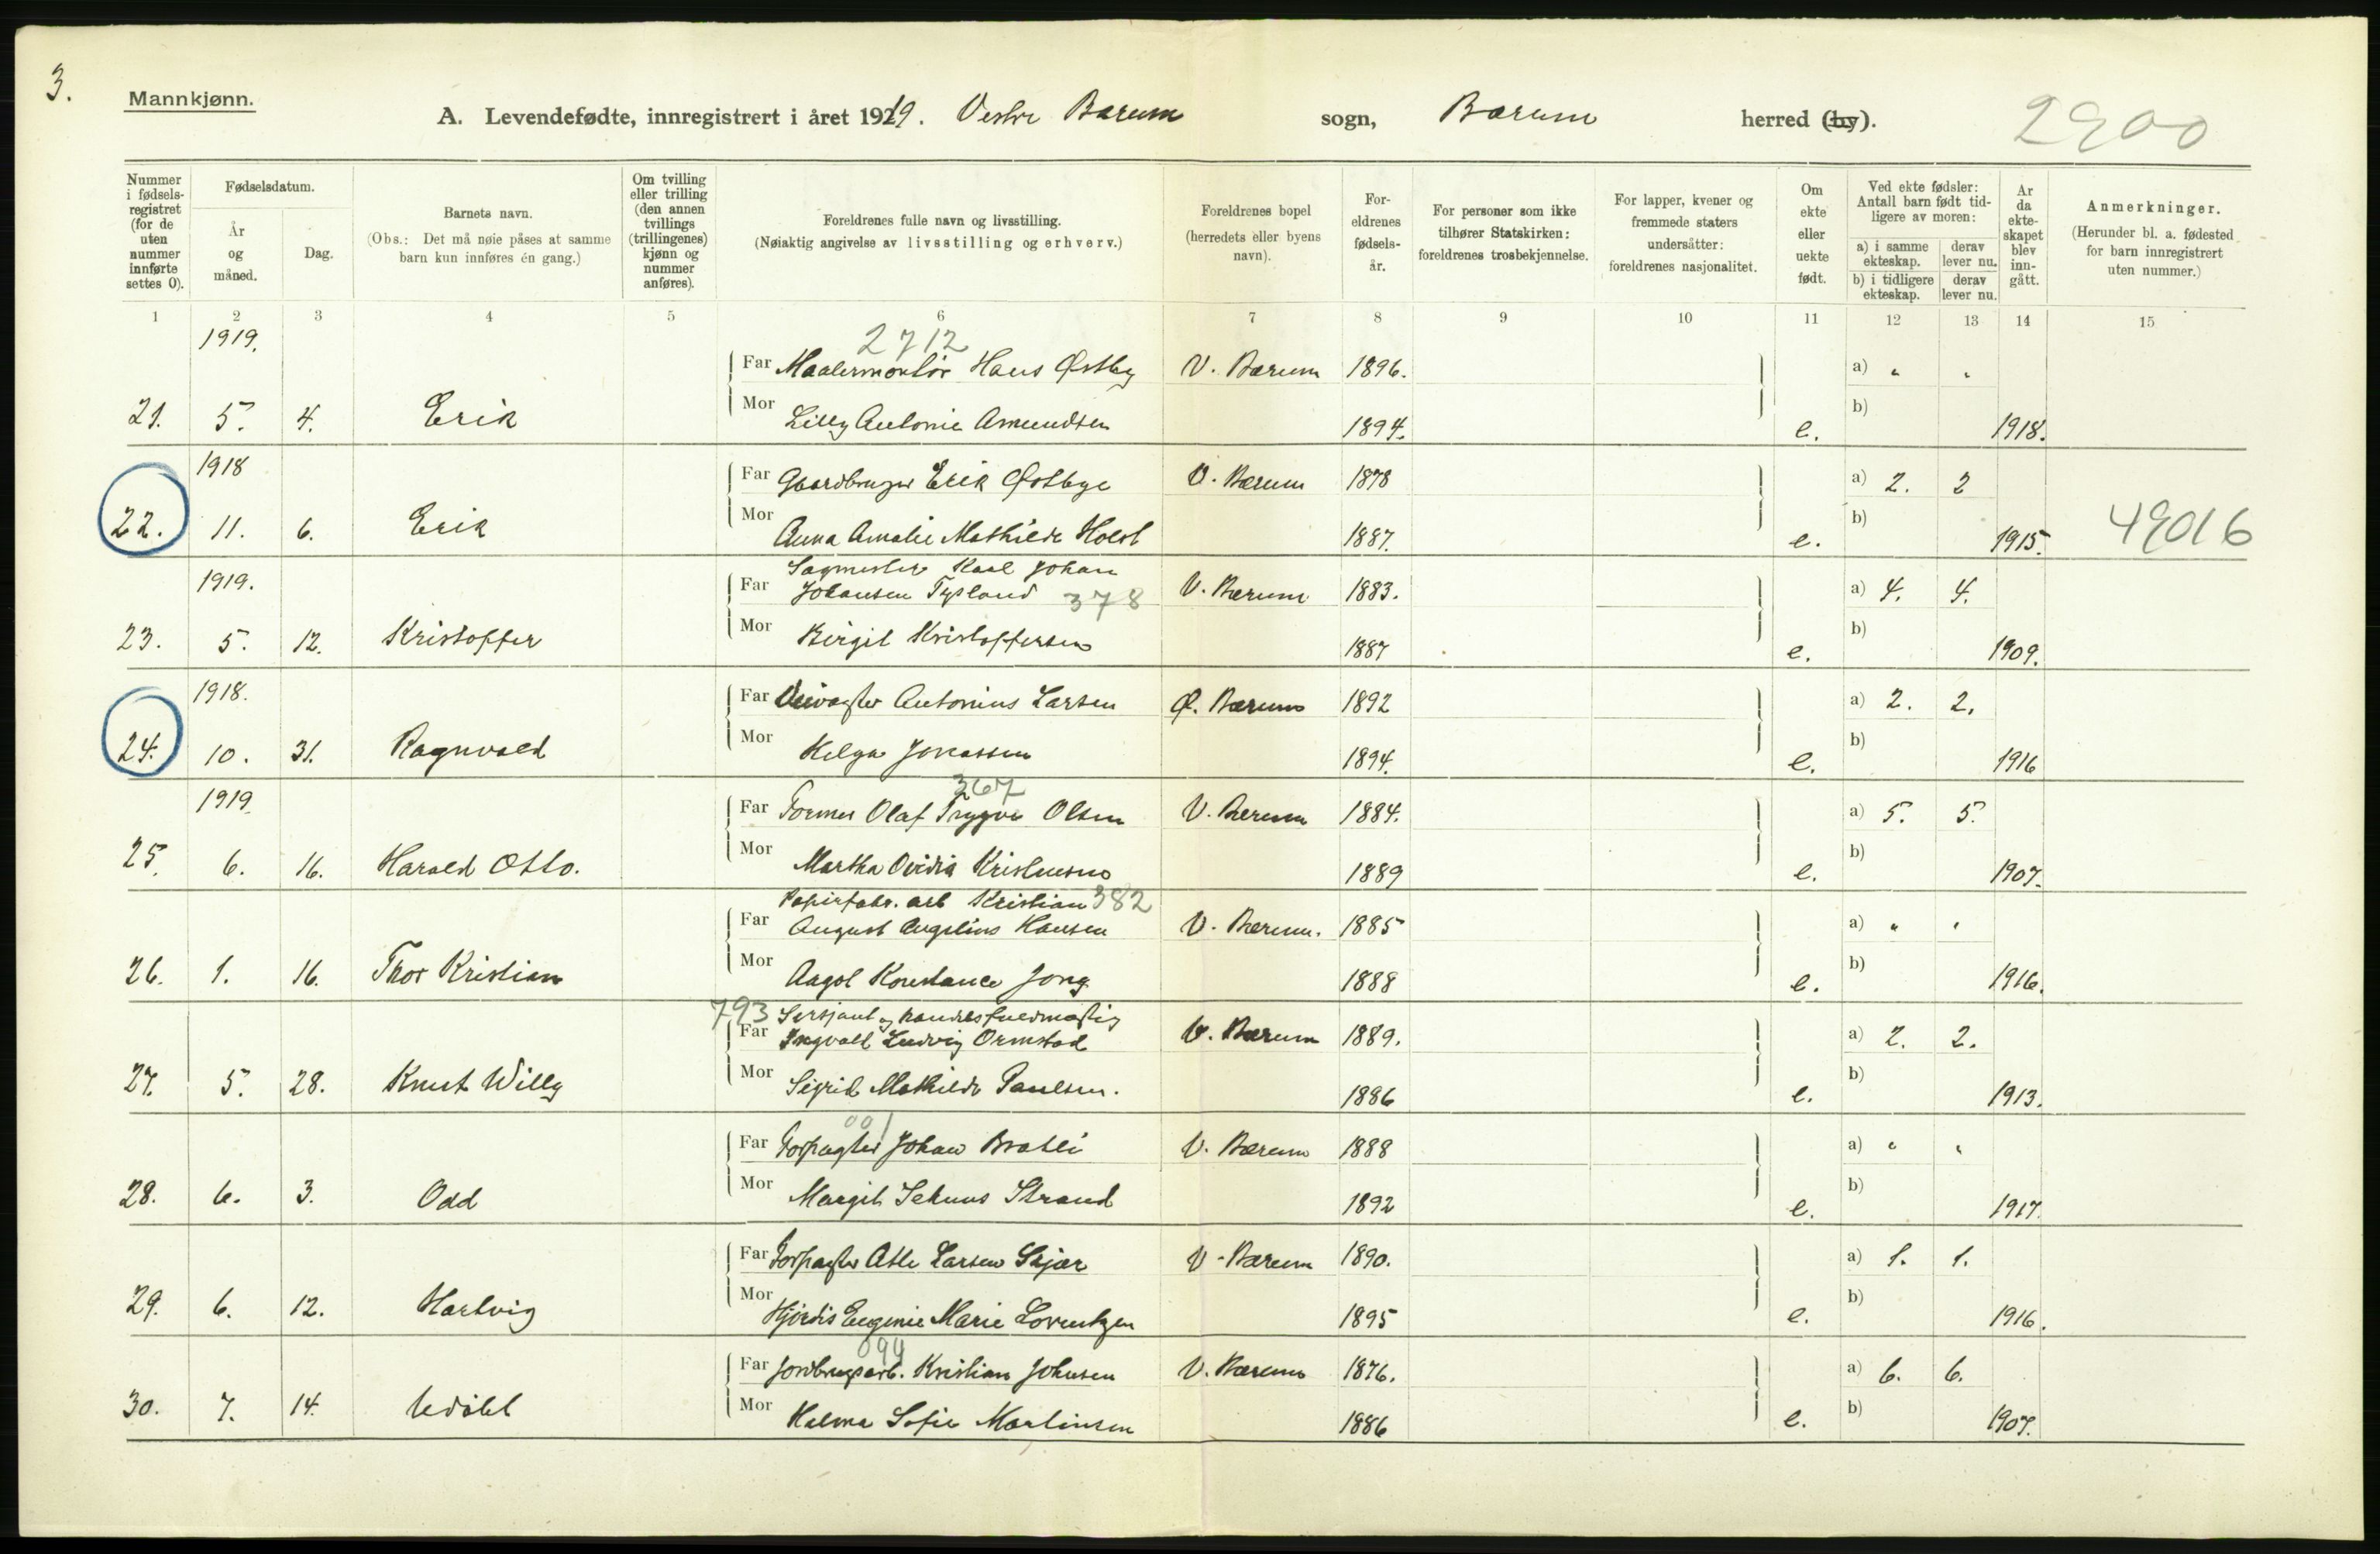 3.
Mannkjønn.
A. Levendefødte, innregistrert i året 1919. Vestre Bærum sogn, Bærum herred (by).
2900
Nummer i fødselsregistret (for de uten nummer innførte settes 0).
Fødselsdatum.
År og måned.
Dag.
Barnets navn.
(Obs.: Det må nøie påses at samme barn kun innføres én gang.)
Om tvilling eller trilling (den annen tvillings (trillingenes) kjønn og nummer anføres).
Foreldrenes fulle navn og livsstilling.
(Nøiaktig angivelse av livsstilling og erhverv.)
Foreldrenes bopel (herredets eller byens navn).
Foreldrenes fødselsår.
For personer som ikke tilhører Statskirken: foreldrenes trosbekjennelse.
For lapper, kvener og fremmede staters undersåtter: foreldrenes nasjonalitet.
Om ekte eller uekte født.
Ved ekte fødsler: Antall barn født tidligere av moren:
a) i samme ekteskap. derav lever nu.
b) i tidligere ekteskap. derav lever nu.
År da ekteskapet blev inngått.
Anmerkninger.
(Herunder bl. a. fødested for barn innregistrert uten nummer.)
1 2 3 4 5 6 7 8 9 10 11 12 13 14 15
1919. 2712
Far Maalermontør Hans Østby V. Bærum 1896. a) " "
21. 5. 4. Erik Mor Lilly Antonie Amundsen 1894. e. b) 1918.
1918 Far Gaardbruger Erik Østbye V. Bærum 1878 a) 2. 2
22. 11. 6. Erik Mor Anna Amalie Mathilde Holst 1887. e. b) 1915. 49016
1919. Sagmester Karl Johan
Far Johansen Tysland 378 V. Bærum 1883. a) 4. 4.
23. 5. 12. Kristoffer Mor Birgit Kristoffersen 1887 e. b) 1909.
1918. Far Veivogter Antonius Larsen Ø. Bærum 1892 a) 2. 2.
24. 10. 31. Ragnvald Mor Helga Jonassen 1894. e. b) 1916
367
1919. Far Former Olaf Trygve Olsen V. Bærum 1884. a) 5. 5.
25. 6. 16. Harald Otto. Mor Martha Ovidia 1889 e. b) 1907.
Papirfabr. arb Kristian 382
Far August Hansen V. Bærum. 1885 a) " "
26. 1. 16. Thor Kristian Mor Aagot Konstance Jong 1888 e. b) 1916.
793 Sersjant og handelsfuldmægtig
Far Ingvald Ludvig Ormstad V. Bærum 1889. a) 2. 2.
27. 5. 28. Knut Willy Mor Sigrid Mathilde Paulsen. 1886 e. b) 1913.
001
Far Forpagter Johan Bratli V. Bærum 1888 a) " "
28. 6. 3. Odd Mor Margit Strand 1892 e. b) 1917.
Far Forpagter Atle Larsen Skjær V. Bærum 1890. a) 1. 1.
29. 6. 12. Hartvig Mor Hjørdis Eugenie Marie Lorentzen 1895 e. b) 1916.
094
Far Jordbrugsarb. Kristian Johnsen V. Bærum 1876. a) 6. 6.
30. 7. 14. Udøbt Mor Halma Sofie Martinsen 1886 e. b) 1907.